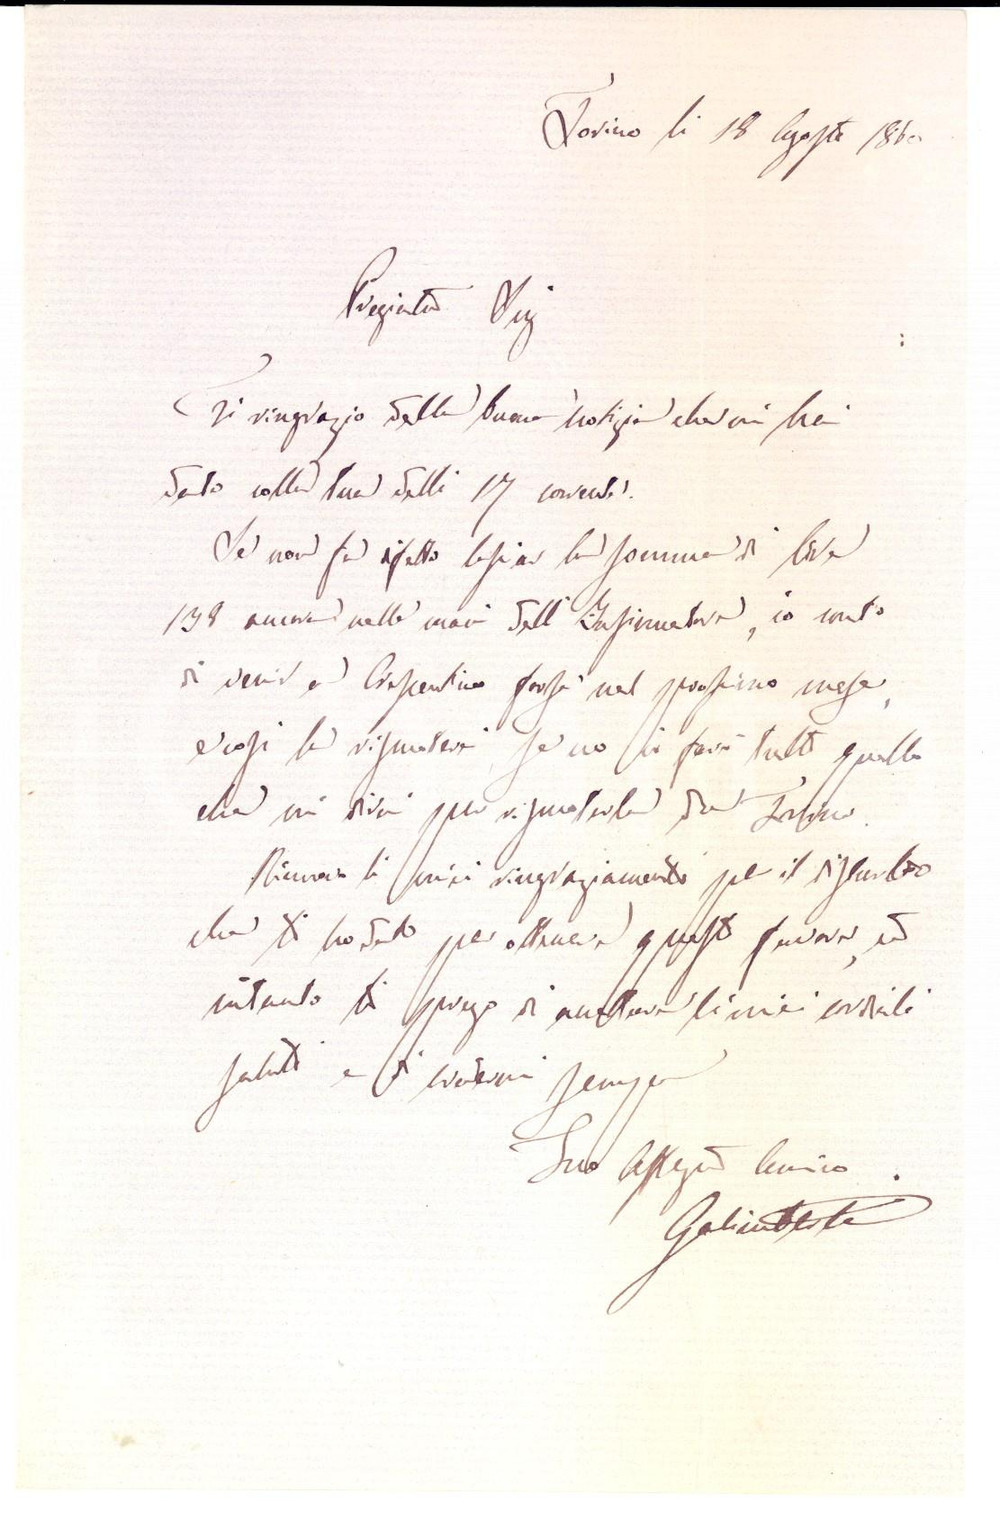 Torino li 18 Agosto 1860
Pregiato Sig
Ti ringrazio della buona notizia che mi hai
dato colla tua delli 17 corrente.
Se non fa difetto lasciar la somma di lire
198 ancora nelle mani dell' , io conto
di venir a Crescentino forse nel prossimo mese,
e così la , se no io farò tutto quello
che mi dirai per da Torino.
Rinnovo li miei ringraziamenti per il disturbo
che ti ho dato per ottenere questo favore, ed
intanto ti prego di accettare li miei cordiali
saluti e di credermi sempre
Tuo Affez Amico